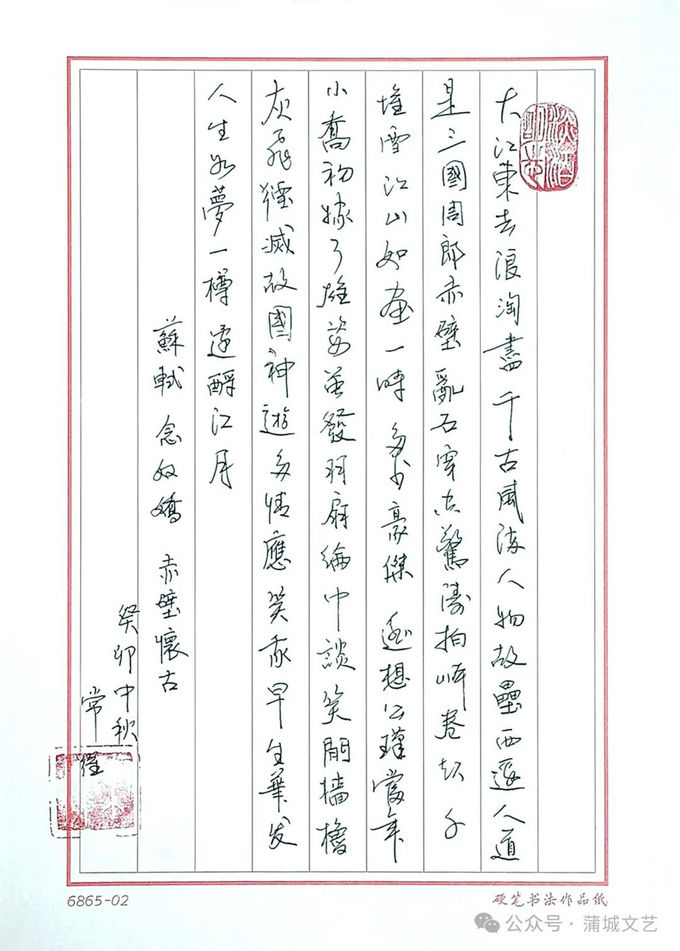 大江東去浪淘盡千古風流人物故壘西邊人道
是三國周郎赤壁亂石穿空驚濤拍岸卷起千
堆雪江山如畫一時多少豪傑遙想公瑾當年
小喬初嫁了雄姿英發羽扇綸巾談笑間檣櫓
灰飛煙滅故國神遊多情應笑我早生華发
人生如夢一樽還酹江月
蘇軾 念奴嬌 赤壁懷古
癸卯中秋
常
6865-02
硬笔书法作品纸
公众号·蒲城文艺